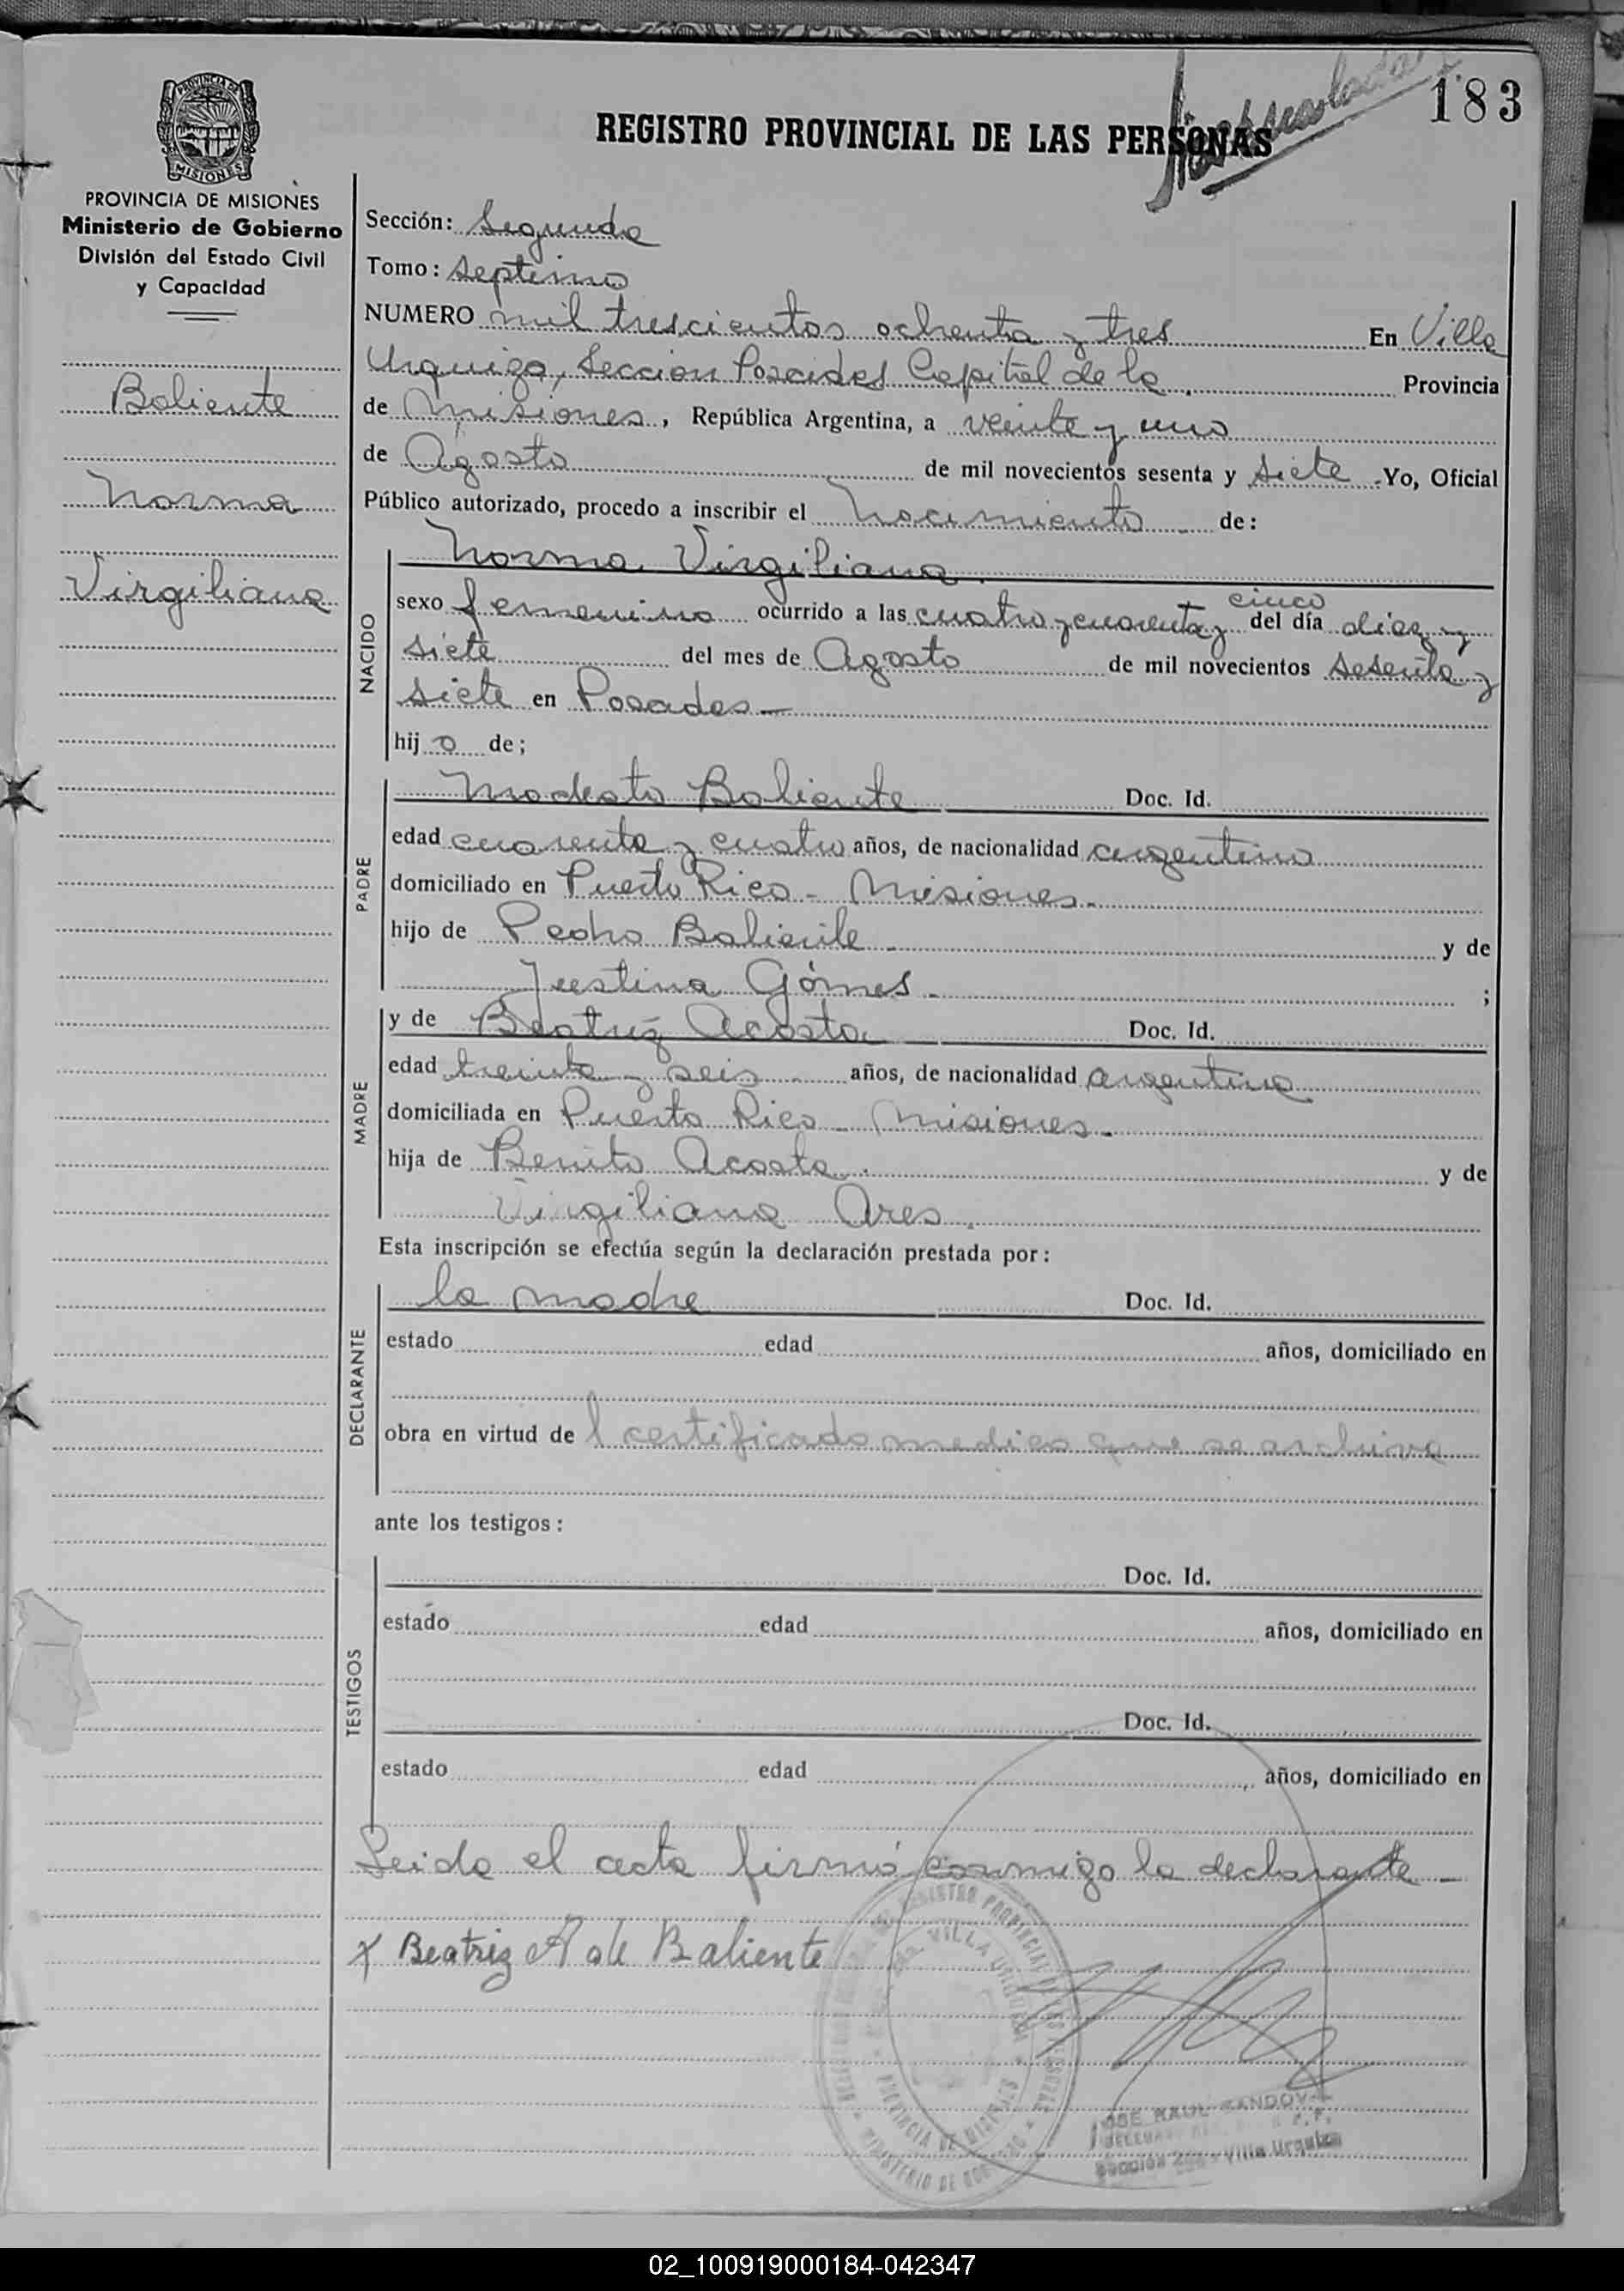 183
REGISTRO PROVINCIAL DE LAS PERSONAS
PROVINCIA DE MISIONES
PROVINCIA DE MISIONES
Ministerio de Gobierno
División del Estado Civil
y Capacidad
Baliente
Norma
Virgiliana
Sección: Segunda
Tomo: septimo
NUMERO mil trescientos ochenta y tres En Villa
Urquiza, Seccion Posadas Capital de la Provincia
de Misiones, República Argentina, a veinte y uno
de Agosto de mil novecientos sesenta y siete .Yo, Oficial
Público autorizado, procedo a inscribir el Nacimiento de:
NACIDO
Norma Virgiliana
sexo femenino ocurrido a las cuatro y cuarenta y cinco del día diez y
siete del mes de Agosto de mil novecientos sesenta y
siete en Posadas
hij a de;
PADRE
Modesto Baliente Doc. Id.
edad cuarenta y cuatro años, de nacionalidad argentino
domiciliado en Puerto Rico - Misiones.
hijo de Pedro Baliente y de
Justina Gómes ;
MADRE
y de Beatriz Acosta Doc. Id.
edad treinta y seis años, de nacionalidad argentina
domiciliada en Puerto Rico - Misiones.
hija de Benito Acosta y de
Virgiliana Ares
Esta inscripción se efectúa según la declaración prestada por:
DECLARANTE
la madre Doc. Id.
estado edad años, domiciliado en
obra en virtud de l certificado medico que se archiva
ante los testigos:
TESTIGOS
Doc. Id.
estado edad años, domiciliado en
Doc. Id.
estado edad años, domiciliado en
Leida el acta firmó conmigo la declarante -
x Beatriz A de Baliente
REGISTRO PROVINCIAL DE LAS PERSONAS
VILLA URQUIZA
PROVINCIA DE MISIONES
MINISTERIO DE GOBIERNO
JOSE RAUL SANDOVAL
Sección 2da - Villa Urquiza
02_100919000184-042347